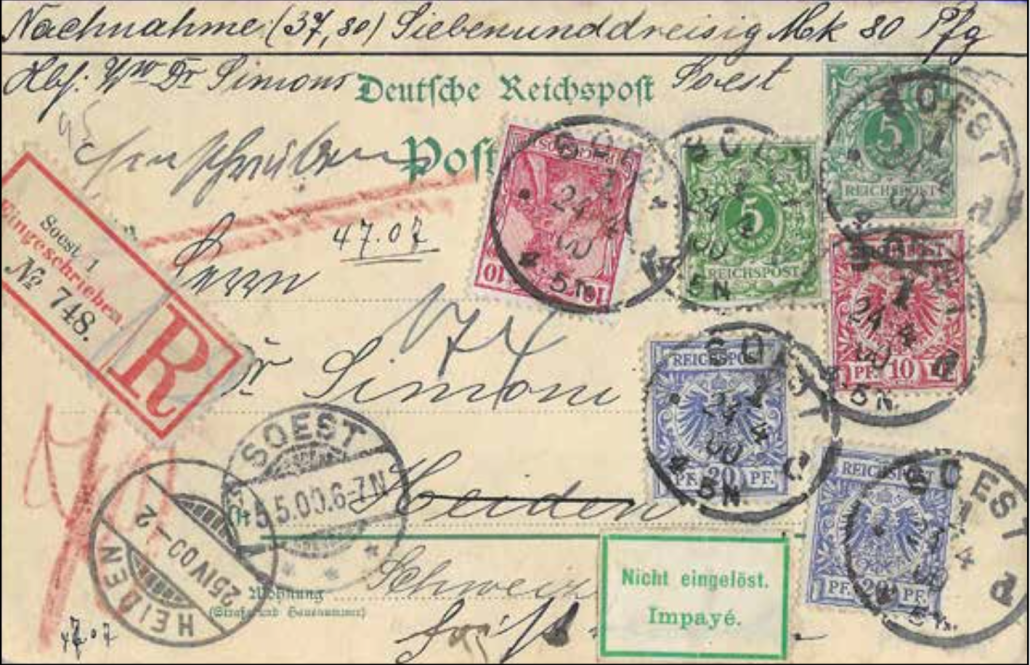 Nachnahme (37,80) Siebenunddreisig Mk 80 Pfg
Abs: Dr Simons Soest
Deutsche Reichspost
Post
Einschreiben
Soest 1
Eingeschrieben.
№ 748.
R
47.07
Herrn
Dr Simons
Heiden
Schweiz
Wohnung
(Straße und Hausnummer)
Nicht eingelöst.
Impayé.
47.07
5
REICHSPOST
5
REICHSPOST
10
10
REICHSPOST
PF. 10 PF.
REICHSPOST
PF. 20 PF.
REICHSPOST
PF. 20 PF.
SOEST
1
24 4
00
4-5 N.
d
SOEST
5.5.00.6-7N
HEIDEN
25 IV 00-2